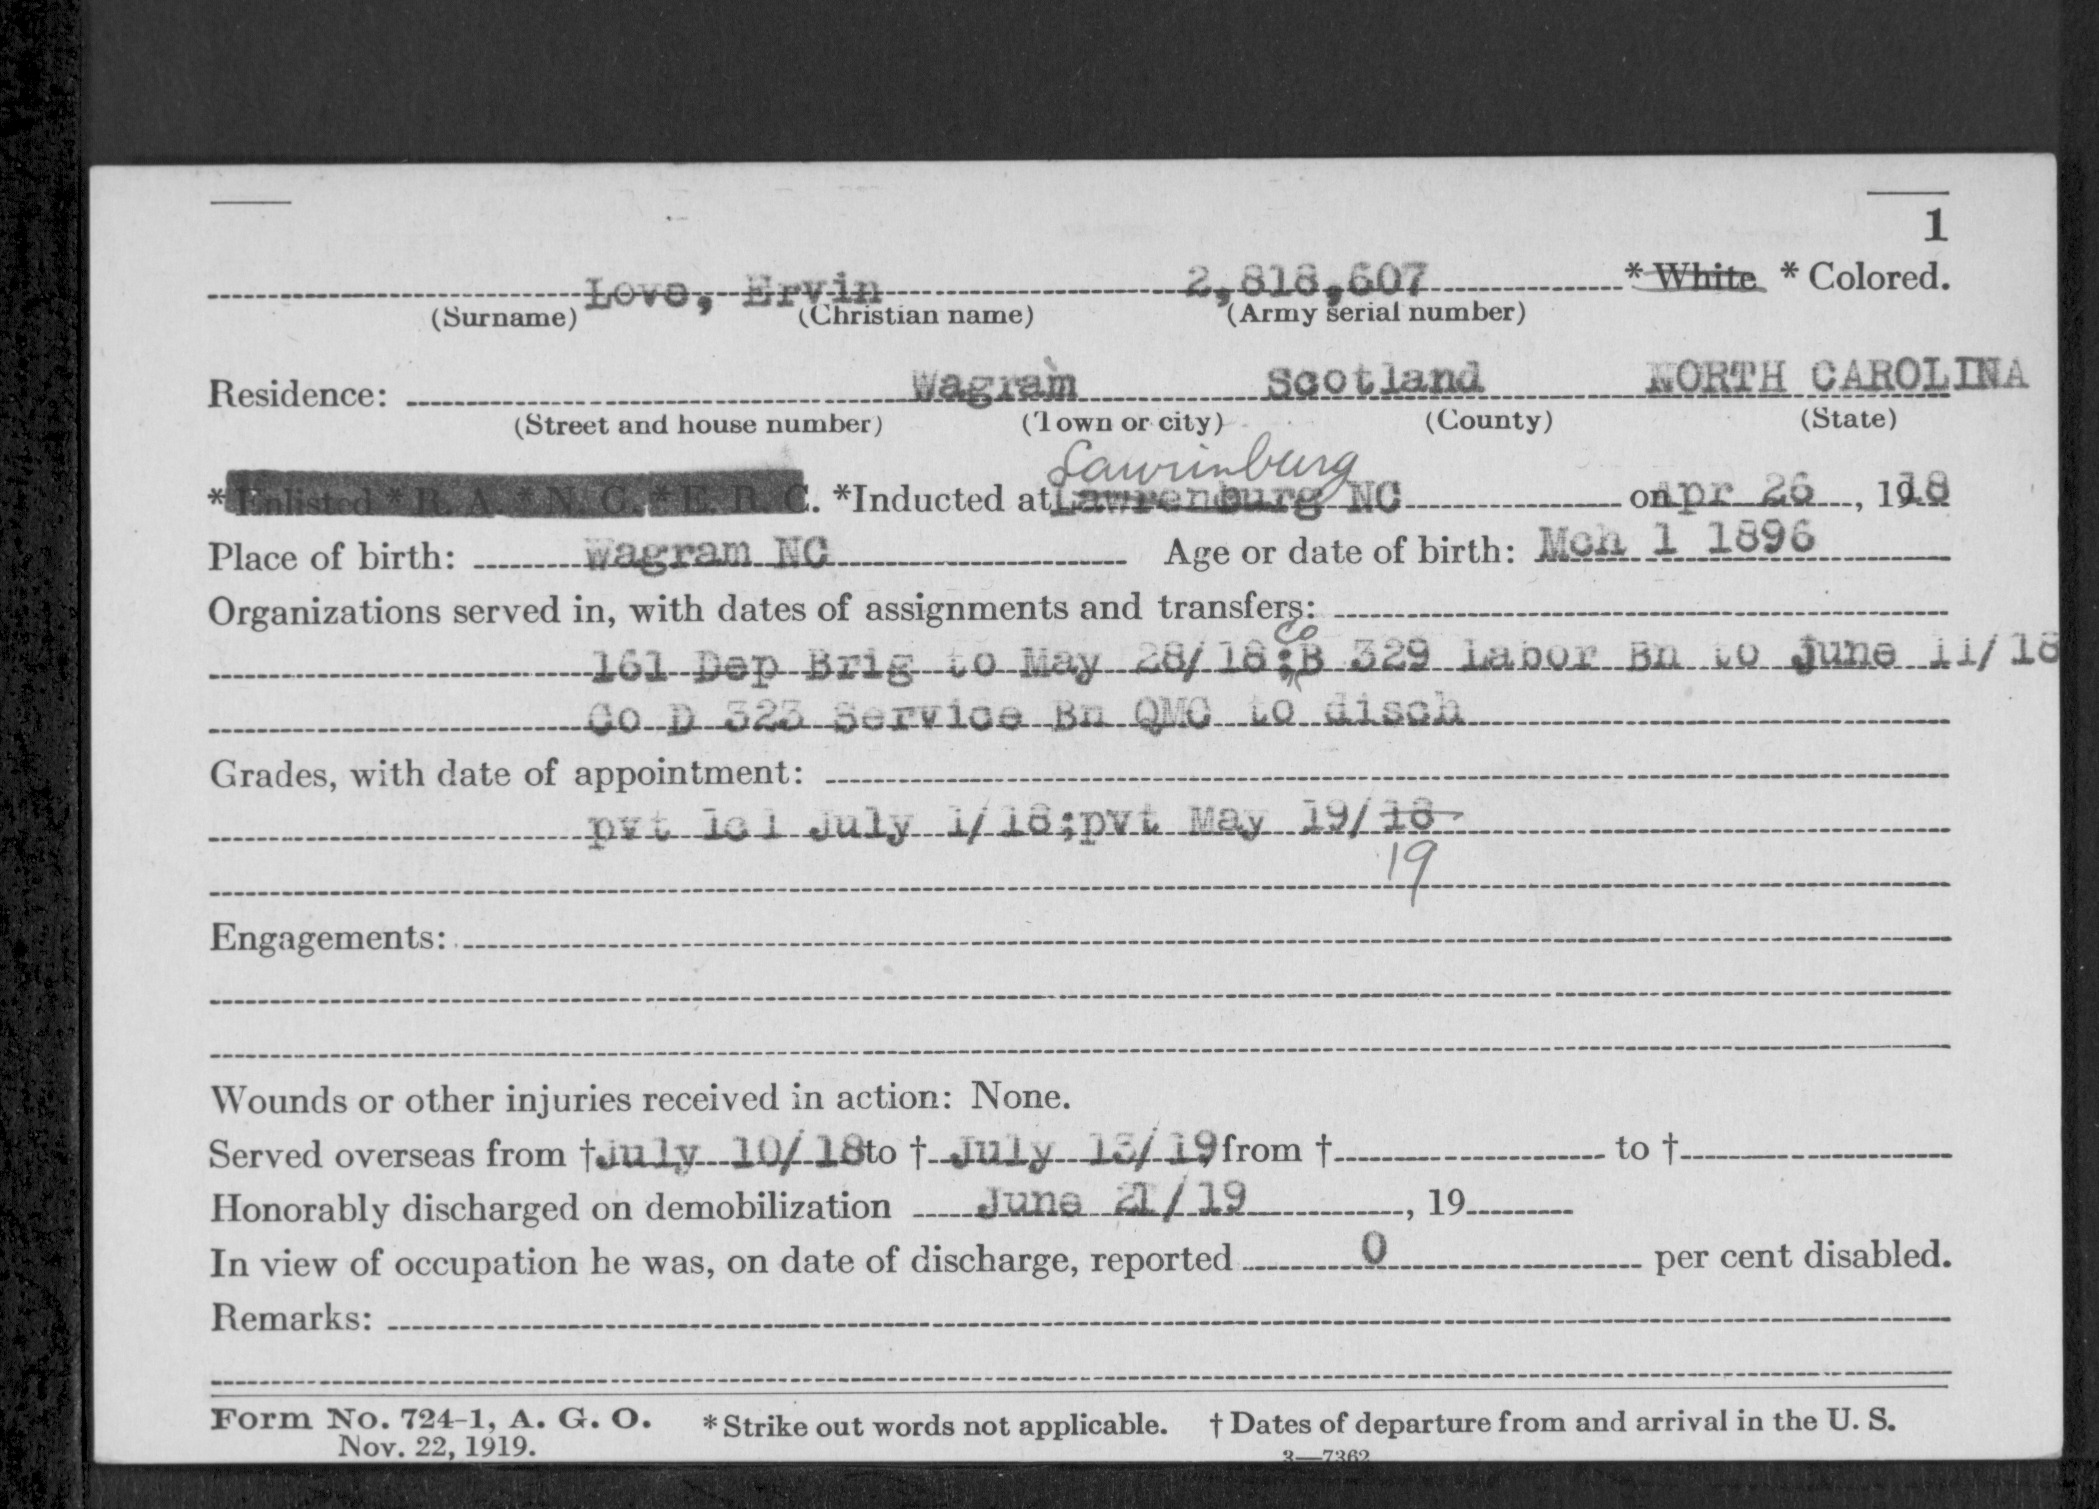 1
Love, Ervin 2,818,607 * White * Colored.
(Surname) (Christian name) (Army serial number)
Residence: Wagram Scotland NORTH CAROLINA
(Street and house number) (Town or city) (County) (State)
Lawrinburg
* Enlisted * R. A. * N. G. * E. R. C. *Inducted at Lawrenburg NC on Apr 26, 1918
Place of birth: Wagram NC Age or date of birth: Mch 1 1896
Organizations served in, with dates of assignments and transfers:
Co
161 Dep Brig to May 28/18;B 329 Labor Bn to June 11/18
Co D 323 Service Bn QMC to disch
Grades, with date of appointment:
pvt 1cl July 1/18;pvt May 19/18
19
Engagements:
Wounds or other injuries received in action: None.
Served overseas from † July 10/18 to † July 13/19 from † to †
Honorably discharged on demobilization June 21/19, 19
In view of occupation he was, on date of discharge, reported 0 per cent disabled.
Remarks:
Form No. 724-1, A. G. O. * Strike out words not applicable. † Dates of departure from and arrival in the U. S.
Nov. 22, 1919.
3—7362